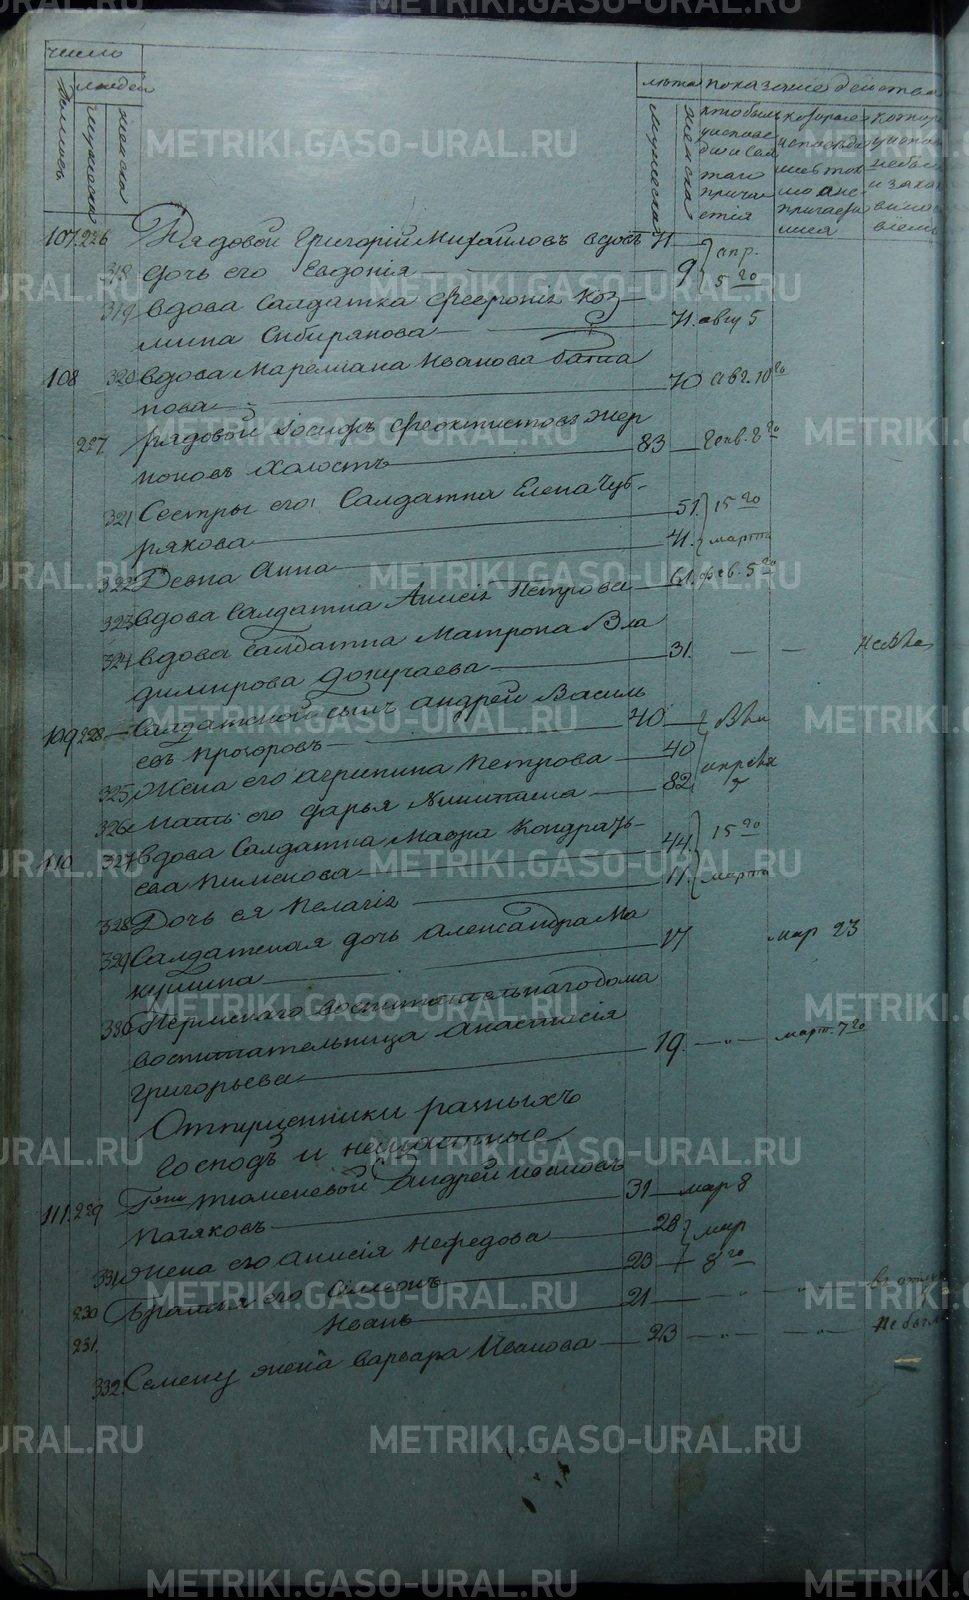 METRIKI.GASO-URAL.RU
число
людей
лета показание действа
домовъ
мужеска
женска
мужеска
женска
кто былъ
у испове
ди и свя
таго
прича
стія
107. 226 Рядовой Григорій Михайловъ вдовъ 71
318 дочь его Евдокія 9 апр. 5го
319 вдова Салдатка Феѳронія Коз
мина Сибирякова 71. авгу 5
108 320 вдова Маремiана Иванова
70 авг. 10го
227. рядовой Іосифъ Феоктистовъ
холостъ 83 генв. 8го
321 Сестры его: Салдатка Елена Чуб-
рякова 51. 15го
322 Девка Анна 41. марта
323 вдова Салдатка Анисія Петрова 61. фев. 5го
324 вдова Салдатка Матрона Вла
димирова Докучаева 31. — —
109 228 Салдатской сынъ Андрей Василь
евъ Прозоровъ 40
325 Жена его Агрипина Петрова 40 апреля
326 Мать его Дарья Никитина 82. 7
110 327 вдова Салдатка Мавра Кондрать-
ева Пименова 44. 15го
328 Дочь ея Пелагія 11. марта
329 Салдатская дочь Александра Ма
кушина 17 мар 23
330 Пермскаго воспитательнаго дома
воспитательница Анастасія
Григорьева 19. — „ — март. 7го
Отпущенники разныхъ
Господъ и нещастные
111. 229 Гжи Тюменевой Андрей Ивановъ
Патяковъ 31 мар 8
331 Жена его Анисія Нефедова 28 мар
230 Братья его Симеонъ 23 8го
231. Иванъ 21 „ „
332. Семену жена Варвара Иванова 23 — „ — „ — не была